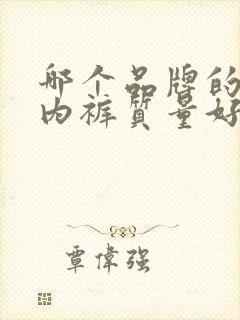 哪个品牌的
内裤质量好
覃偉强